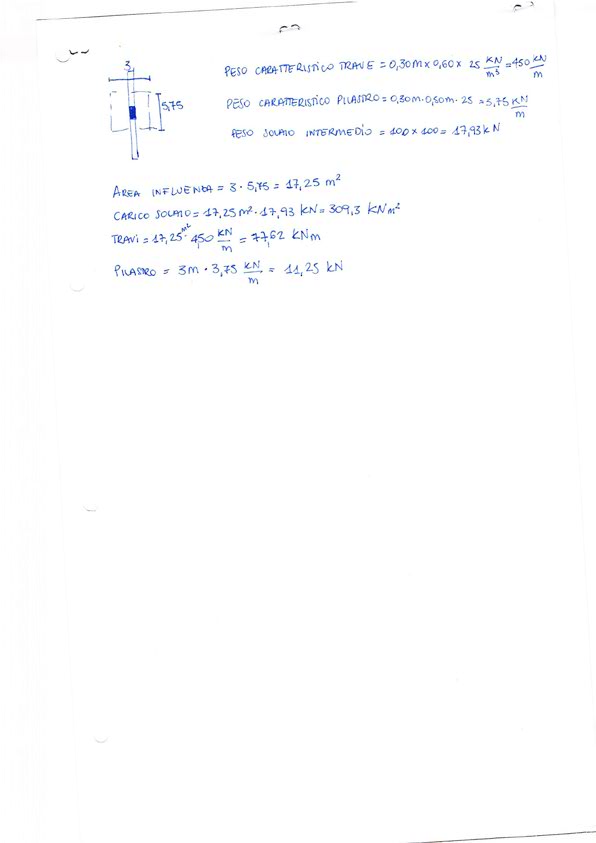 3
5,75
PESO CARATTERISTICO TRAVE = 0,30M x 0,60 x 25 KN/m³ = 450 KN/m
PESO CARATTERISTICO PILASTRO = 0,30M · 0,50M · 25 = 5,75 KN/m
PESO SOLAIO INTERMEDIO = 100 x 100 = 17,93 KN
AREA INFLUENZA = 3 · 5,75 = 17,25 m²
CARICO SOLAIO = 17,25 m² · 17,93 KN = 309,3 KNm²
TRAVI = 17,25 m² · 4,50 KN/m = 77,62 KNm
PILASTRO = 3M · 3,75 KN/m = 11,25 KN